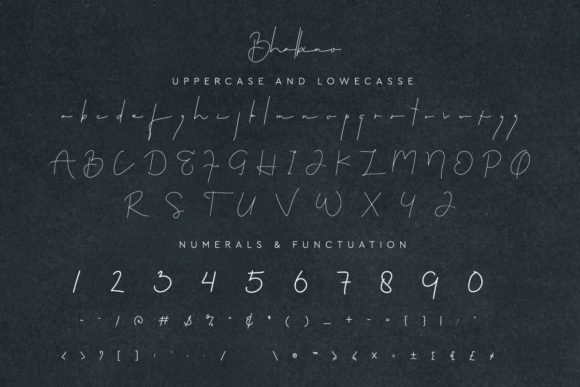 Bhalbino
UPPERCASE AND LOWECASSE
a b c d e f g h i j k l m n o p q r s t u v w x y z
A B C D E F G H I J K L M N O P Q
R S T U V W X Y Z
NUMERALS & FUNCTUATION
1 2 3 4 5 6 7 8 9 0
! @ # $ % ^ & * ( ) _ + - = { } |
< > ? [ ] / \ ® ™ × ÷ ± £